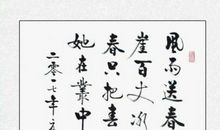 風雨送春
崖百丈冰
春只把春
她在叢中
二零一七年